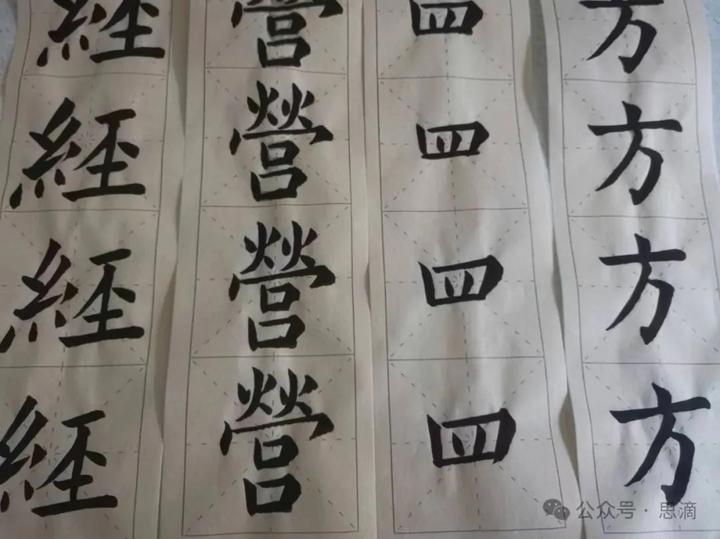 經營四方
經營四方
經營四方
經營四方
公众号·思滴